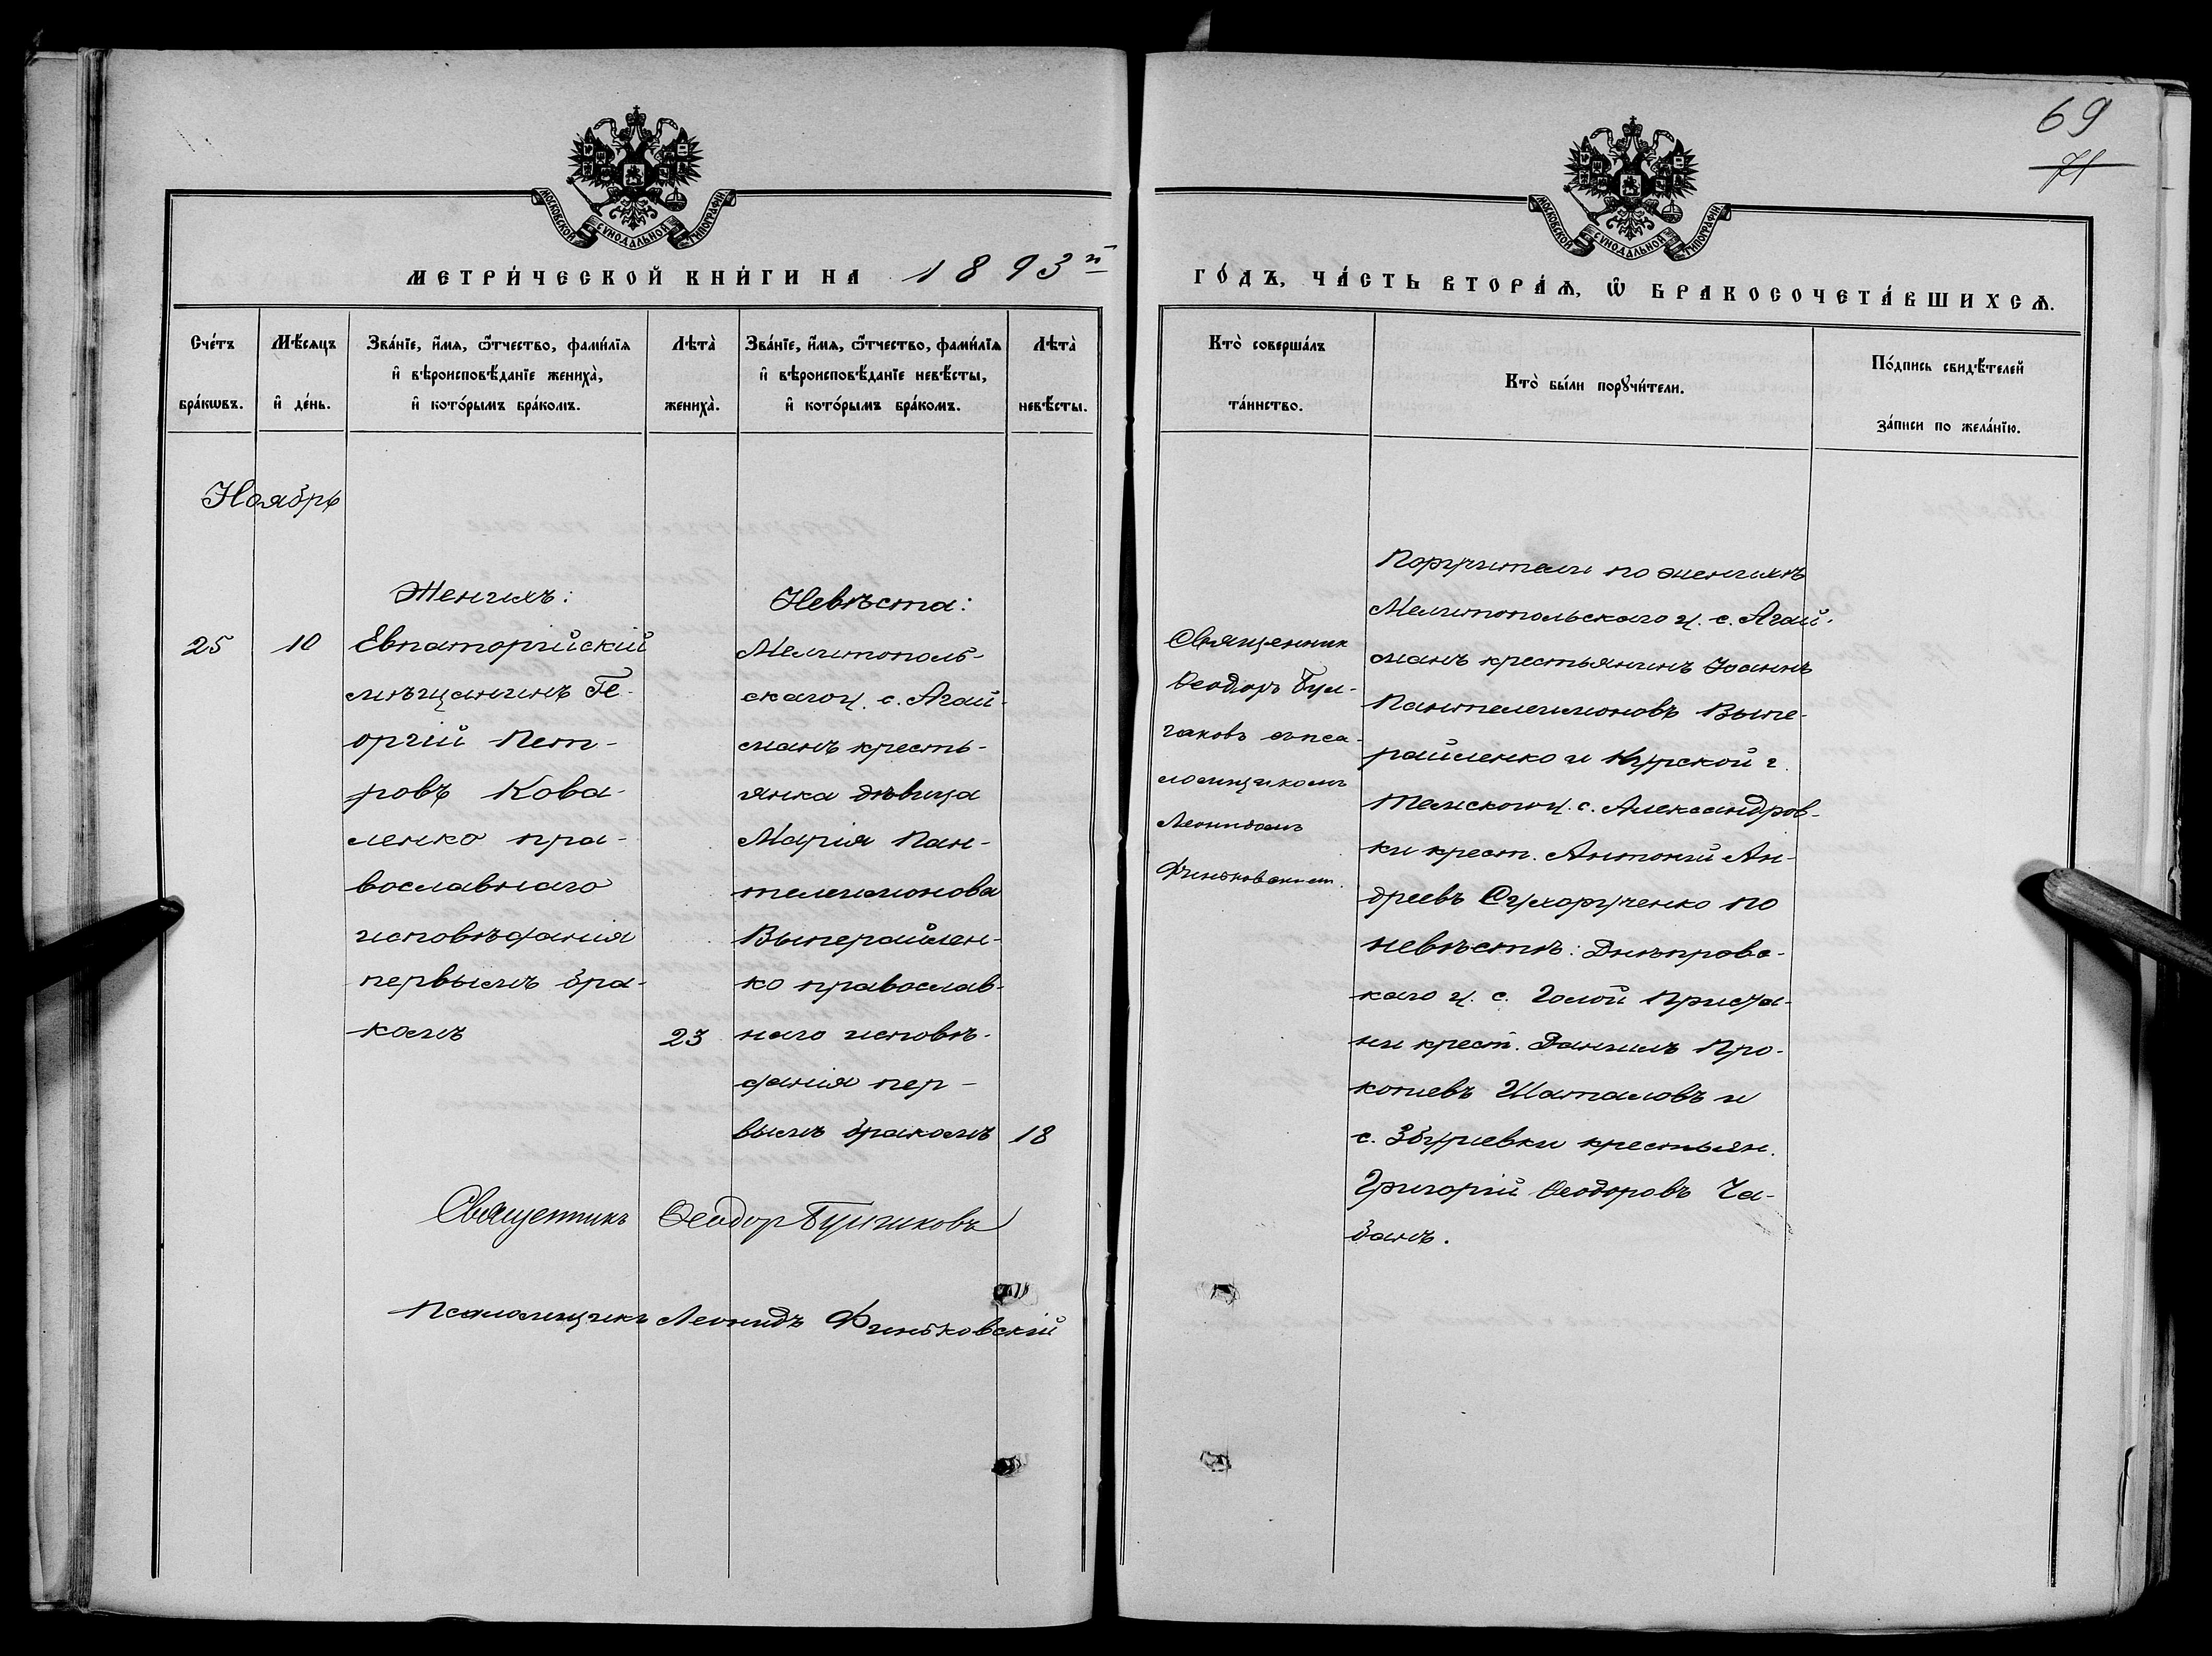 69
71
МОСКОВСКОЙ СѴНОДАЛЬНОЙ ТИПОГРАФІИ
МОСКОВСКОЙ СѴНОДАЛЬНОЙ ТИПОГРАФІИ
МЕТРИ́ЧЕСКОЙ КНИ́ГИ НА 1893й
ГО́ДЪ, ЧА́СТЬ ВТОРА́Ѧ, Ѽ БРАКОСОЧЕТА́ВШИХСѦ.
Сче́тъ бра́кѡвъ.
Мѣ́сяцъ и҆ де́нь.
Зва́нїе, и҆́мѧ, ѻ҆́тчество, фами́лїѧ
и҆ вѣроисповѣ́данїе жениха̀,
и҆ кото́рымъ бра́комъ.
Лѣта̀ жениха̀.
Зва́нїе, и҆́мѧ, ѻ҆́тчество, фами́лїѧ
и҆ вѣроисповѣ́данїе невѣ́сты,
и҆ кото́рымъ бра́комъ.
Лѣта̀ невѣ́сты.
Кто̀ соверша́лъ
та́инство.
Кто̀ бы́ли порꙋчи́тели.
По́дпись свидѣ́телей
за́писи по жела́нїю.
Ноябрь
25
10
Женихъ:
Евпаторійскій
мѣщанинъ Ге-
оргій Пет-
ровъ Кова-
ленко пра-
вославнаго
исповѣданія
первымъ бра-
комъ
23
Невѣста:
Мелитополь-
скаго у. с. Агай-
манъ кресть-
янка дѣвица
Марія Пан-
телеимонова
Выперайлен-
ко православ-
наго исповѣ-
данія пер-
вымъ бракомъ
18
Священникъ Ѳеодор Булгаковъ
Псаломщикъ Леонидъ Финьковскій
Священник
Ѳеодоръ Бул-
гаковъ съ пса-
ломщикомъ
Леонидомъ
Поручители по женихѣ
Мелитопольскаго у. с. Агай-
манъ крестьянинъ Іоаннъ
Пантелеимоновъ Выпе-
райленко и Курской г.
Тимскаго у. с. Александров-
ки крест. Антоній Ан-
дреевъ Сухорученко по
невѣстѣ: Днѣпровс-
каго у. с. Голой Приста-
ни крест. Даниилъ Про-
копіевъ Шаталовъ и
с. Збурьевки крестьян.
Григорій Ѳеодоровъ Ча-
банъ.